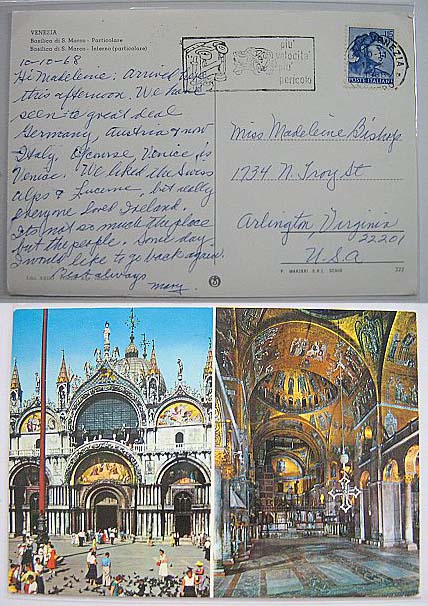 VENEZIA
Basilica di S. Marco - Particolare
Basilica di S. Marco - Interno (particolare)
10-10-68
Hi Madeleine: Arrived here
this afternoon. We have
seen a great deal
Germany, Austria & now
Italy. Of course, Venice is
Venice. We liked the Swiss
Alps & Lucerne, but really
everyone loved Ireland.
Its not so much the place
but the people. Some day
I would like to go back again.
Best always
Mary
più
velocità
più
pericolo
VENEZIA
POSTE ITALIANE
Miss Madeleine Bishop
1734 N. Troy St
Arlington Virginia
22201
U.S.A
322